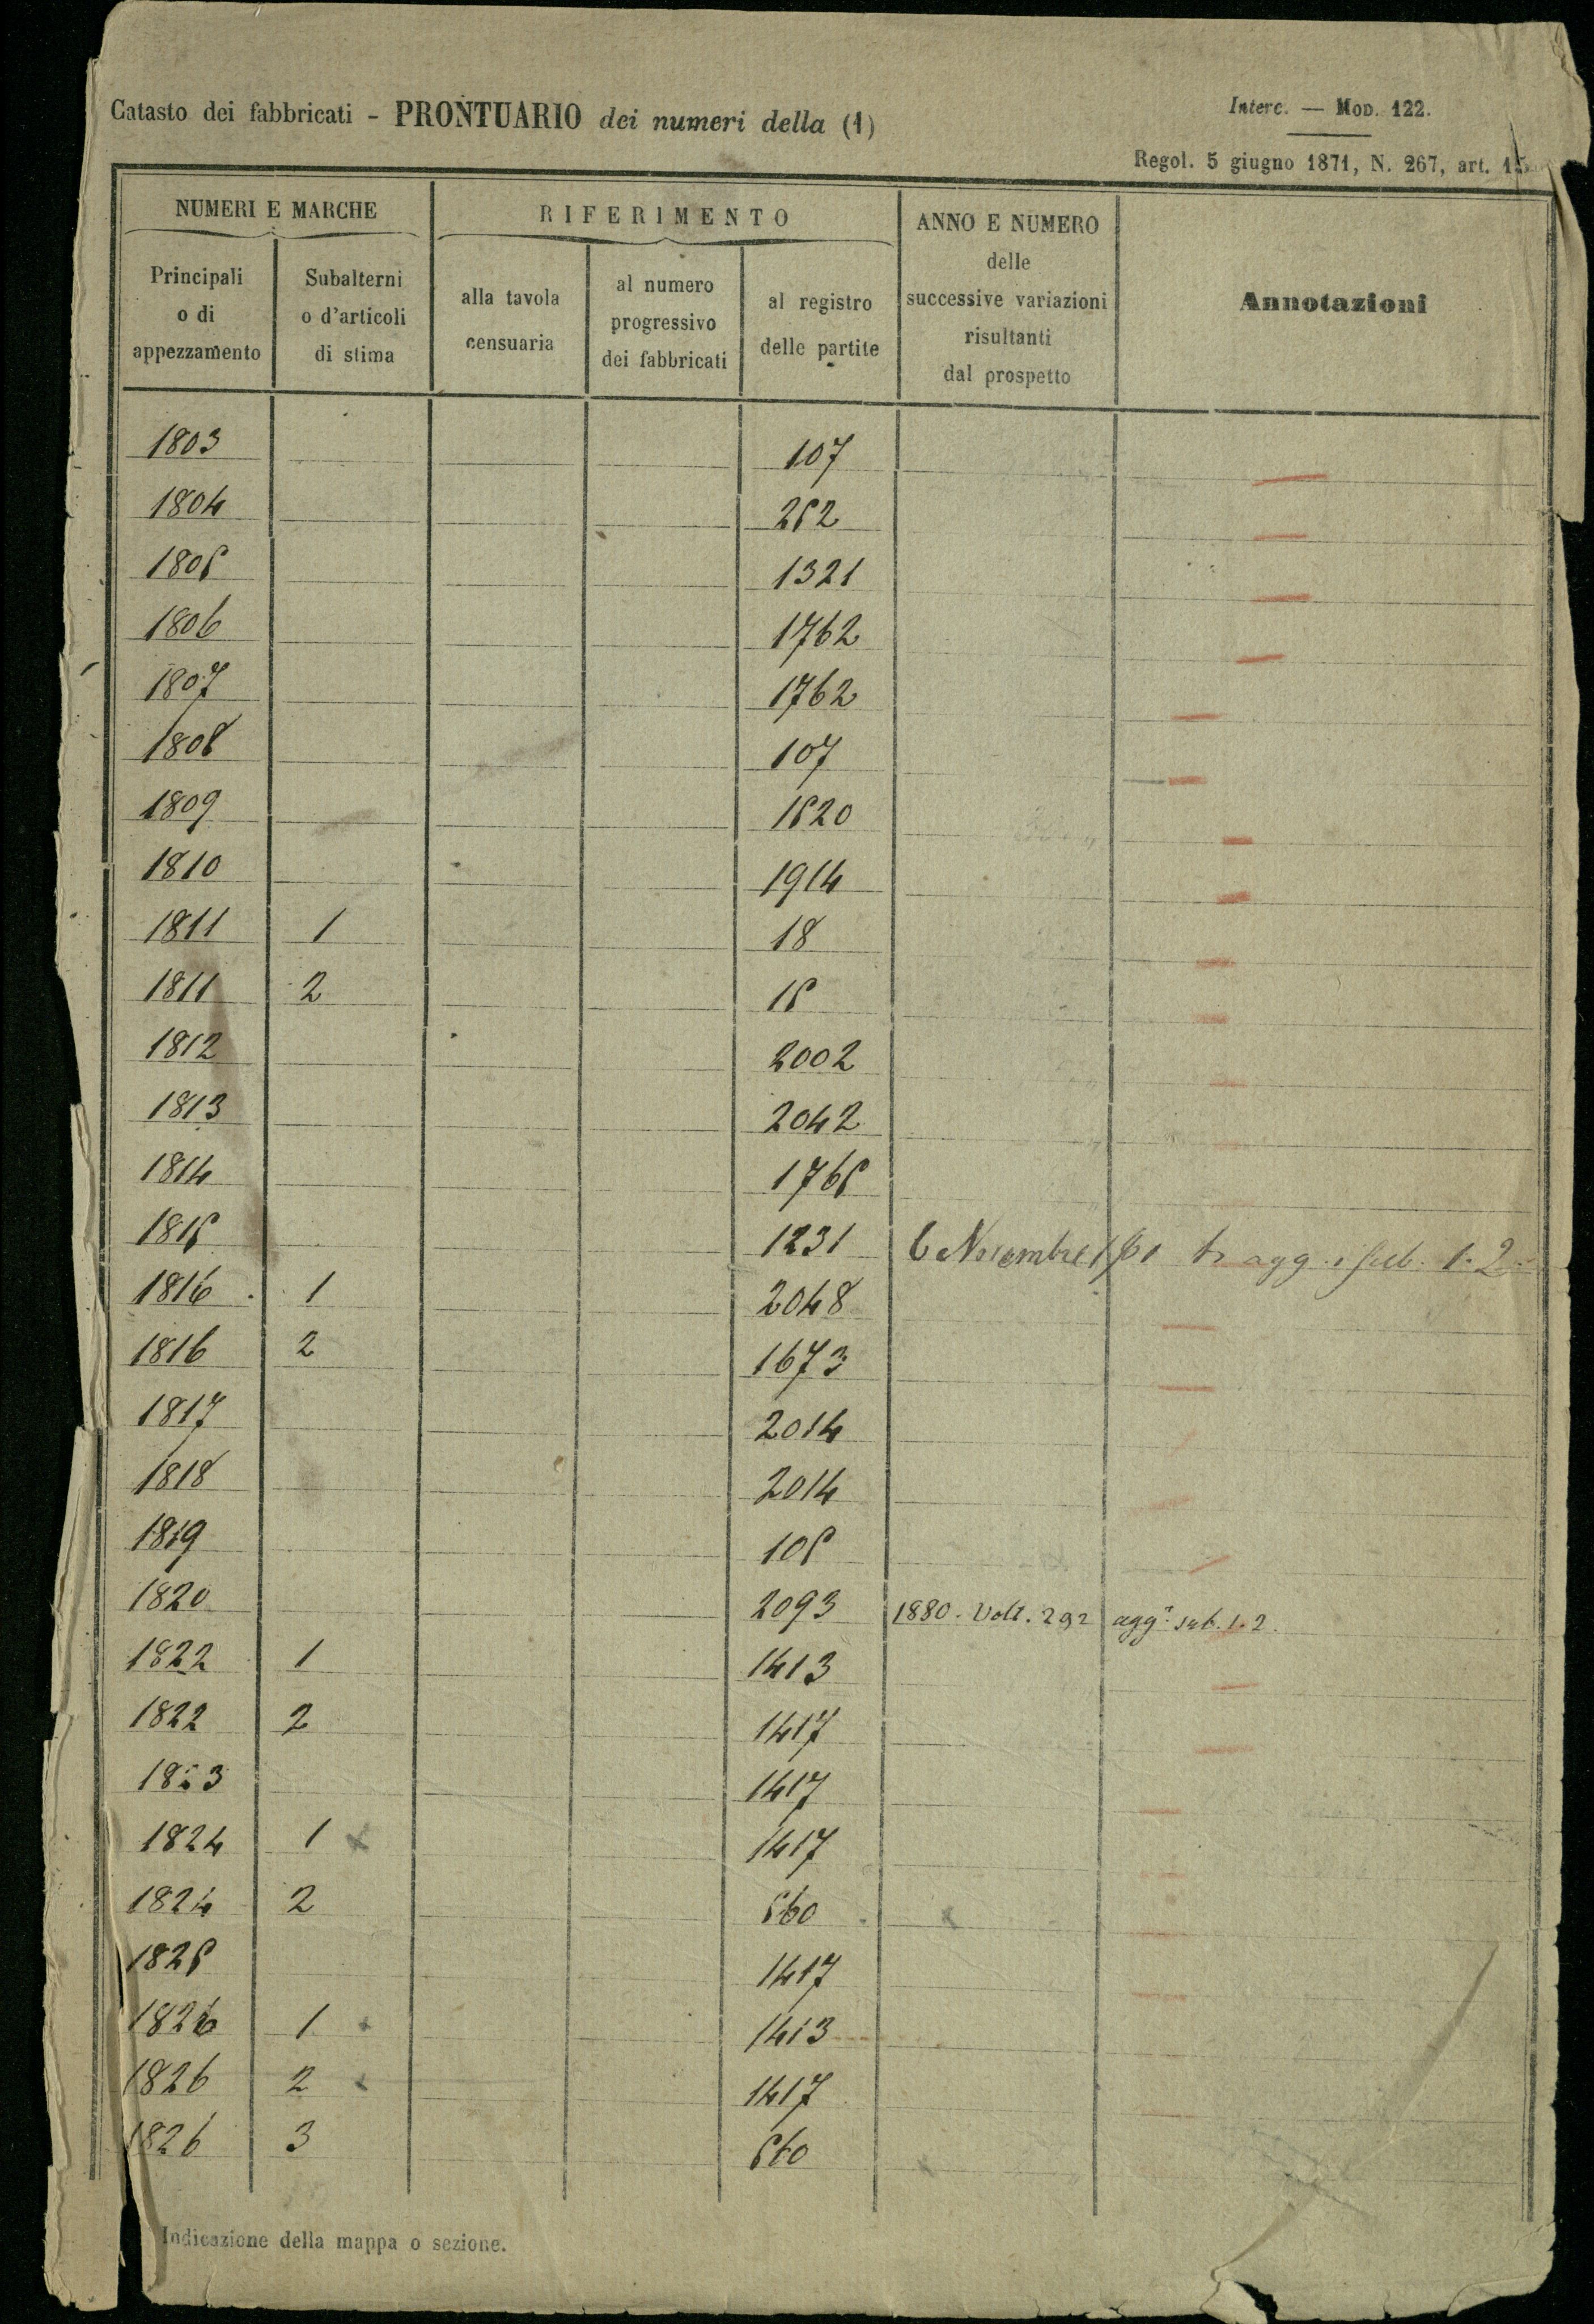 Catasto dei fabbricati - PRONTUARIO dei numeri della (1)
Interc. — MOD. 122.
Regol. 5 giugno 1871, N. 267, art. 15
NUMERI E MARCHE
RIFERIMENTO
ANNO E NUMERO
delle
successive variazioni
risultanti
dal prospetto
Annotazioni
Principali
o di
appezzamento
Subalterni
o d'articoli
di stima
alla tavola
censuaria
al numero
progressivo
dei fabbricati
al registro
delle partite
1803 107
1804 252
1805 1321
1806 1762
1807 1762
1808 107
1809 1520
1810 1914
1811 1 18
1811 2 15
1812 2002
1813 2042
1814 1765
1815 1231 6 Novembre agg. sub. 1. 2.
1816 1 2048
1816 2 1673
1817 2014
1818 2014
1819 105
1820 2093 1880. Volt. 292 agg.ⁱ sub. 1. 2.
1822 1 1413
1822 2 1417
1823 1417
1824 1 x 1417
1824 2 560 x
1825 1417
1826 1 x 1413
1826 2 x 1417
1826 3 560 x
Indicazione della mappa o sezione.